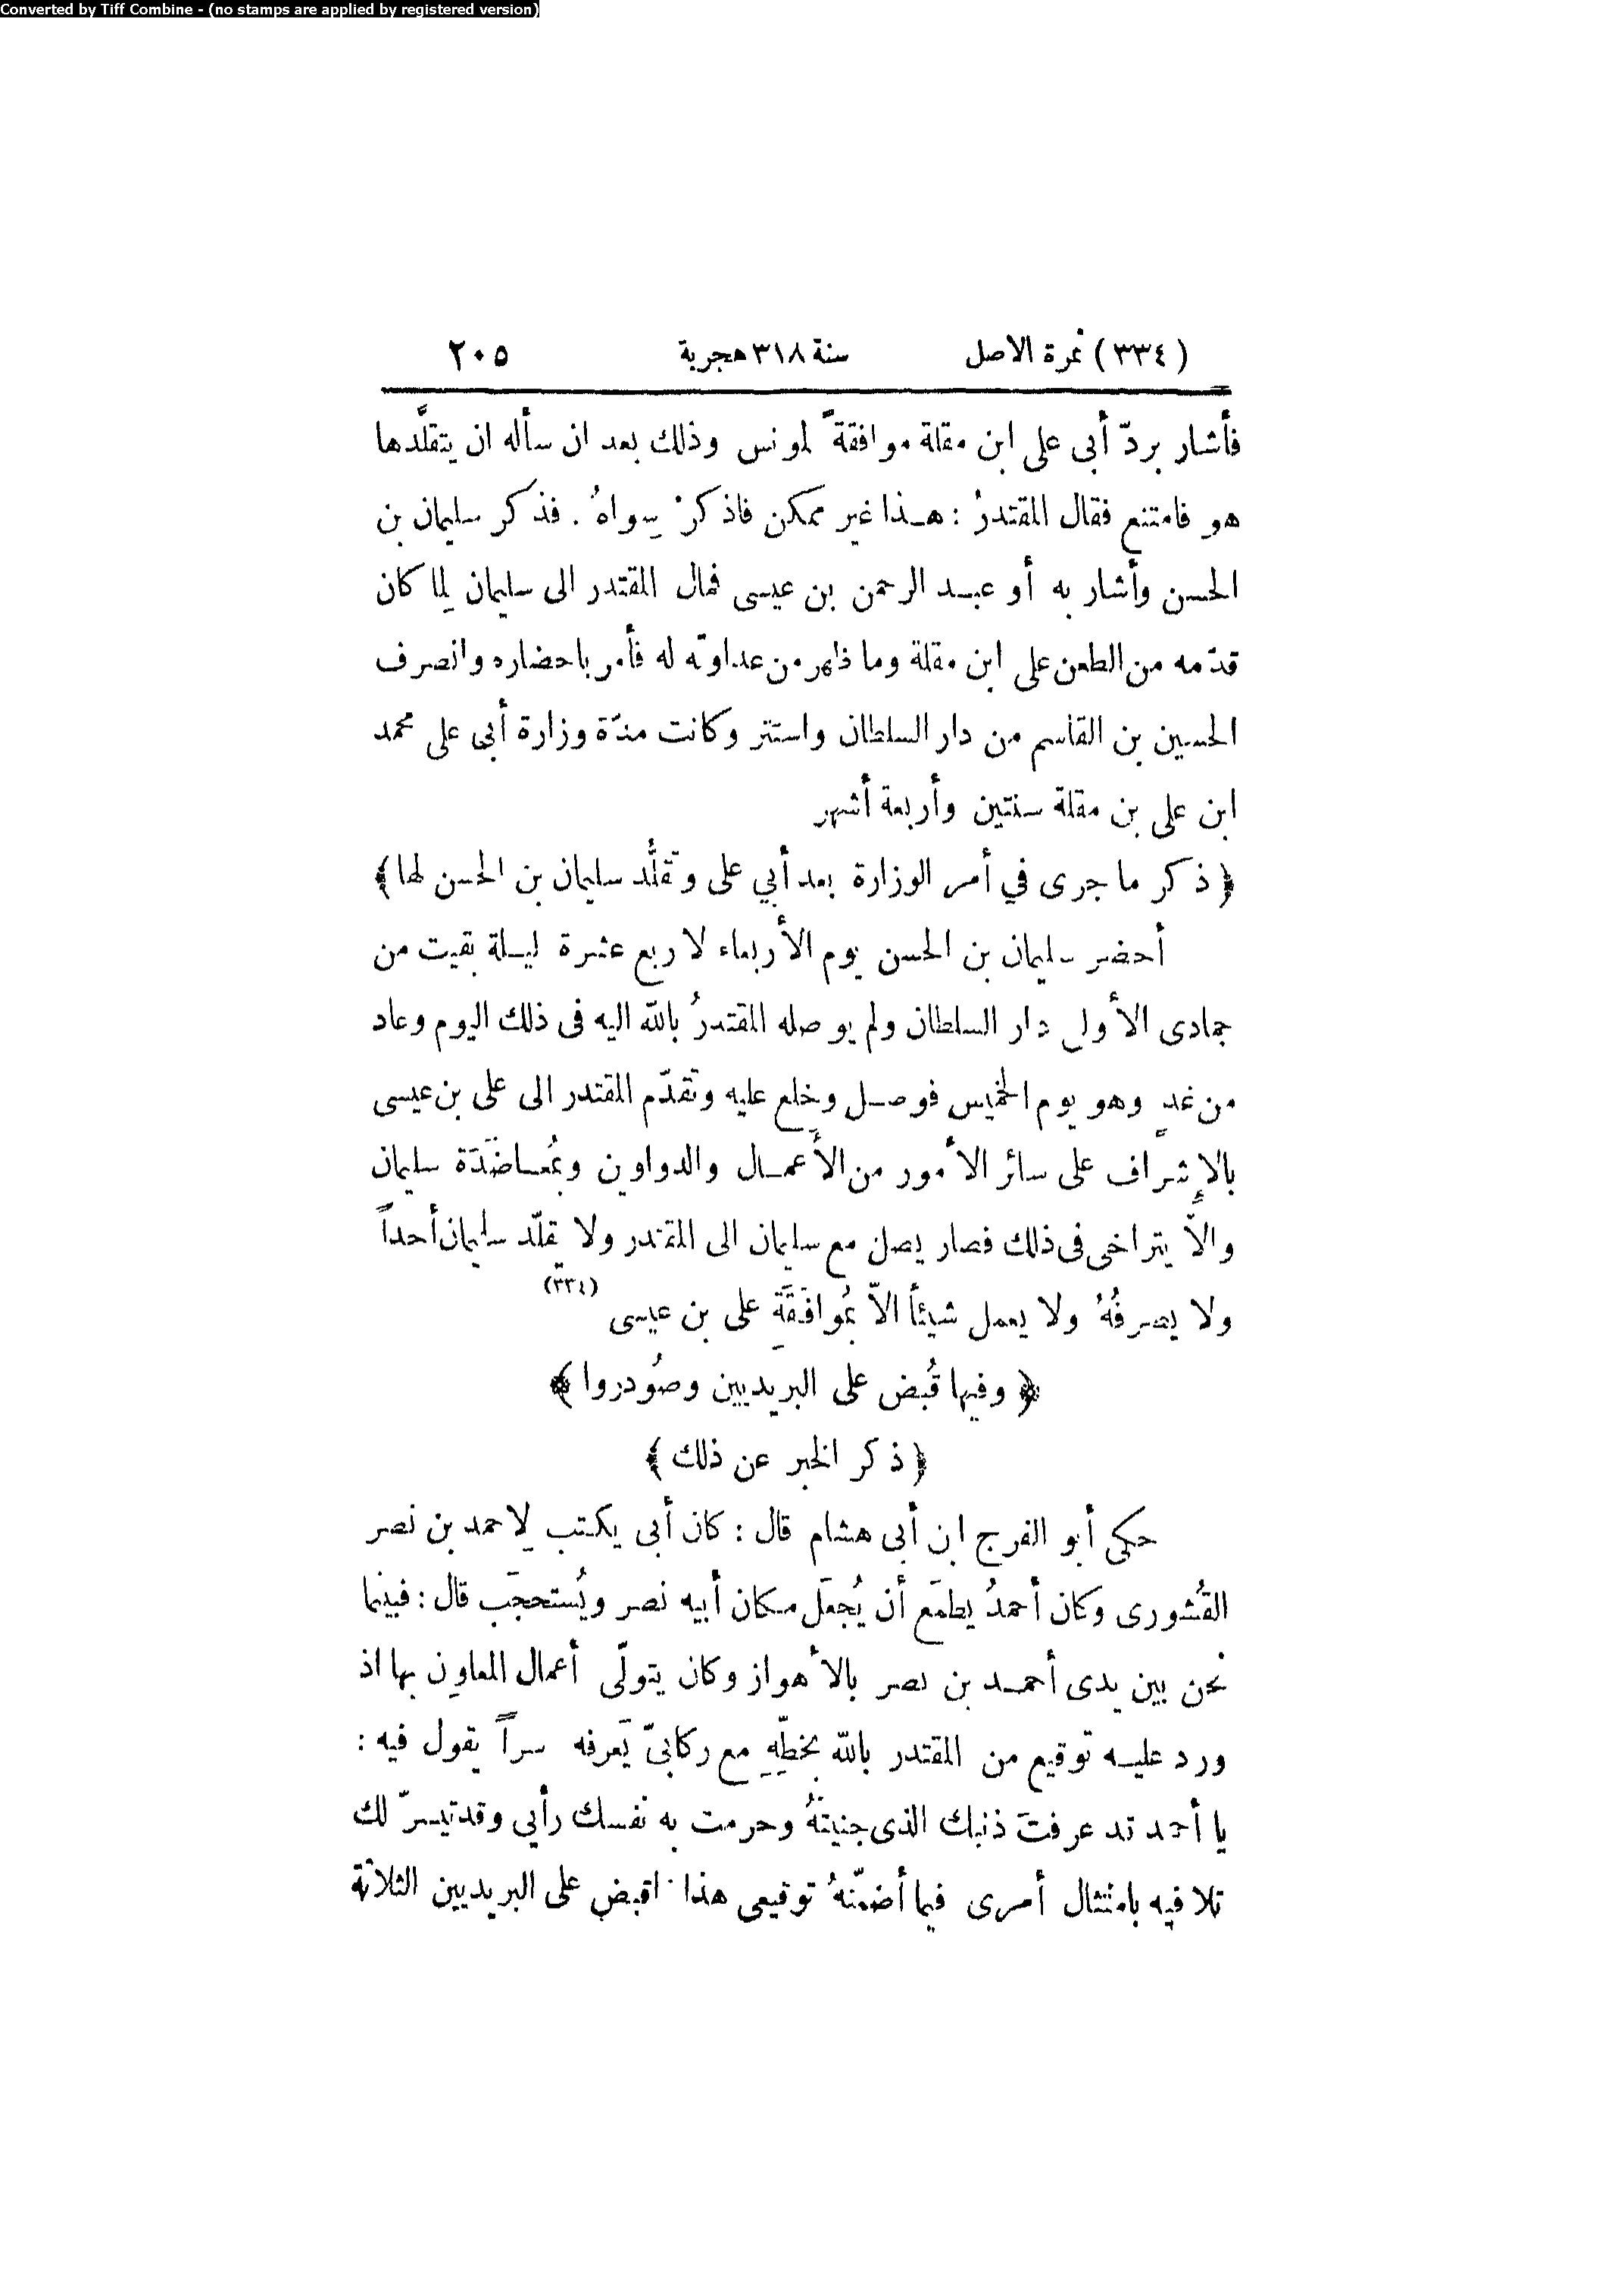 Converted by Tiff Combine - (no stamps are applied by registered version)
(٣٣٤) نمرة الاصل سنة ٣١٨ هجرية ٢٠٥
فأشار بردّ أبى على ابن مقلة موافقةً لمونس وذلك بعد ان سأله ان يتقلَّدها
هو فامتنع فقال المقتدرُ : هذا غير ممكن فاذكرْ سِواهُ . فذكر سليمان بن
الحسن وأشار به أو عبد الرحمن بن عيسى فمال المقتدر الى سليمان لِما كان
قدّمه من الطعن على ابن مقلة وما ظهر من عداوته له فأمر باحضاره وانصرف
الحسين بن القاسم من دار السلطان واستتر وكانت مدّة وزارة أبى على محمد
ابن على بن مقلة سنتين وأربعة أشهر
﴿ ذكر ما جرى في أمر الوزارة بعد أبي على وتقلُّد سليمان بن الحسن لها ﴾
أحضر سليمان بن الحسن يوم الأربعاء لاربع عشرة ليلة بقيت من
جمادى الأولى دار السلطان ولم يوصله المقتدرُ بالله اليه فى ذلك اليوم وعاد
من غدٍ وهو يوم الخميس فوصل وخلع عليه وتقدّم المقتدر الى على بن عيسى
بالإِشراف على سائر الأمور من الأعمال والدواوين وبمُعاضَدَة سليمان
والاّ يتراخى فى ذلك فصار يصل مع سليمان الى المقتدر ولا يقلّد سليمان أحداً
ولا يصرفُهُ ولا يعمل شيئاً الاّ بمُوافَقَةِ على بن عيسى (٣٣٤)
﴿ وفيها قُبض على البريديين وصُودروا ﴾
﴿ ذكر الخبر عن ذلك ﴾
حكى أبو الفرج ابن أبى هشام قال : كان أبى يكتب لِاحمد بن نصر
القُشورى وكان أحمدُ يطمَع أن يُجعَل مكان أبيه نصر ويُستحجَب قال : فبينما
نحن بين يدى أحمد بن نصر بالأهواز وكان يتولّى أعمال المعاوِن بها اذ
ورد عليه توقيع من المقتدر بالله بخطِّهِ مع ركابىّ يَعرفه سراً يقول فيه :
يا أحمد قد عرفتَ ذنبك الذى جنيتَهُ وحرمت به نفسك رأيي وقد تيسرّ لك
تلافيه بامتثال أمرى فيما أضمّنهُ توقيعى هذا اقبض على البريديين الثلاثة